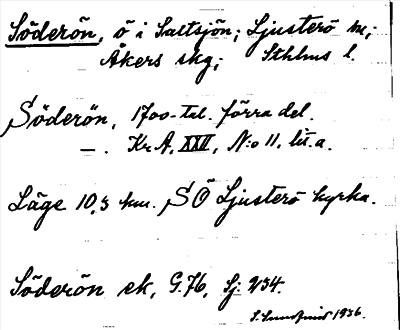 Söderön, ö i Saltsjön; Ljusterö sn;
Åkers skg; Sthlms l.
Söderön, 1700-tal. förra del.
—. Kr. A. XXII, N:o 11, lit. a.
Läge 10,3 km. SÖ Ljusterö kyrka.
Söderön ek, G. 76, Sj: 234.
1936.